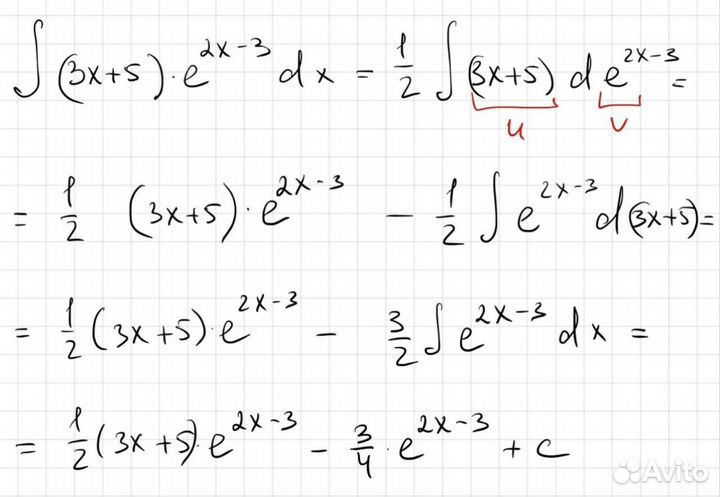 ∫(3x+5)·e^{2x-3} dx = 1/2 ∫(3x+5) d e^{2x-3} =
u v
= 1/2 (3x+5)·e^{2x-3} - 1/2 ∫ e^{2x-3} d(3x+5) =
= 1/2 (3x+5)·e^{2x-3} - 3/2 ∫ e^{2x-3} dx =
= 1/2 (3x+5)·e^{2x-3} - 3/4 · e^{2x-3} + c
Avito